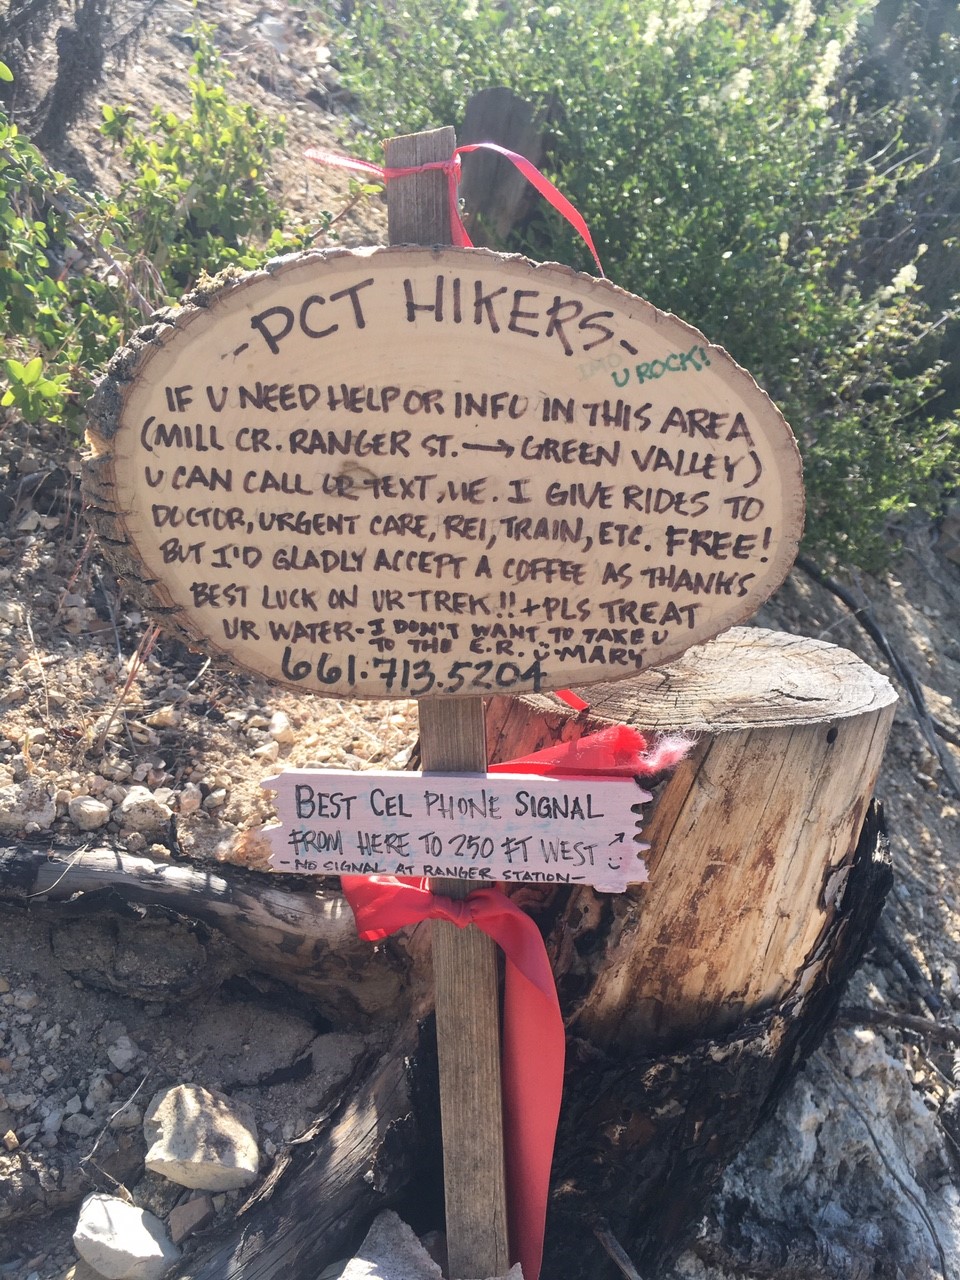 -PCT HIKERS-
U ROCK!
IF U NEED HELP OR INFO IN THIS AREA
(MILL CR. RANGER ST. → GREEN VALLEY)
U CAN CALL OR TEXT ME. I GIVE RIDES TO
DOCTOR, URGENT CARE, REI, TRAIN, ETC. FREE!
BUT I'D GLADLY ACCEPT A COFFEE AS THANKS
BEST LUCK ON UR TREK!! + PLS TREAT
UR WATER - I DON'T WANT TO TAKE U
TO THE E.R. MARY
661.713.5204
BEST CEL PHONE SIGNAL
FROM HERE TO 250 FT WEST →
-NO SIGNAL AT RANGER STATION-